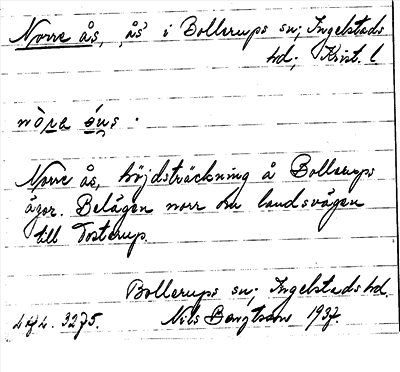 Norre ås, ,ås' i Bollerups sn; Ingelstads
hd; Krist. l
nòrə áus.
Norre ås, höjdsträckning å Bollerups
ägor. Belägen norr om landsvägen
till Tosterup.
Bollerups sn; Ingelstads hd.
Nils Bengtsson 1937.